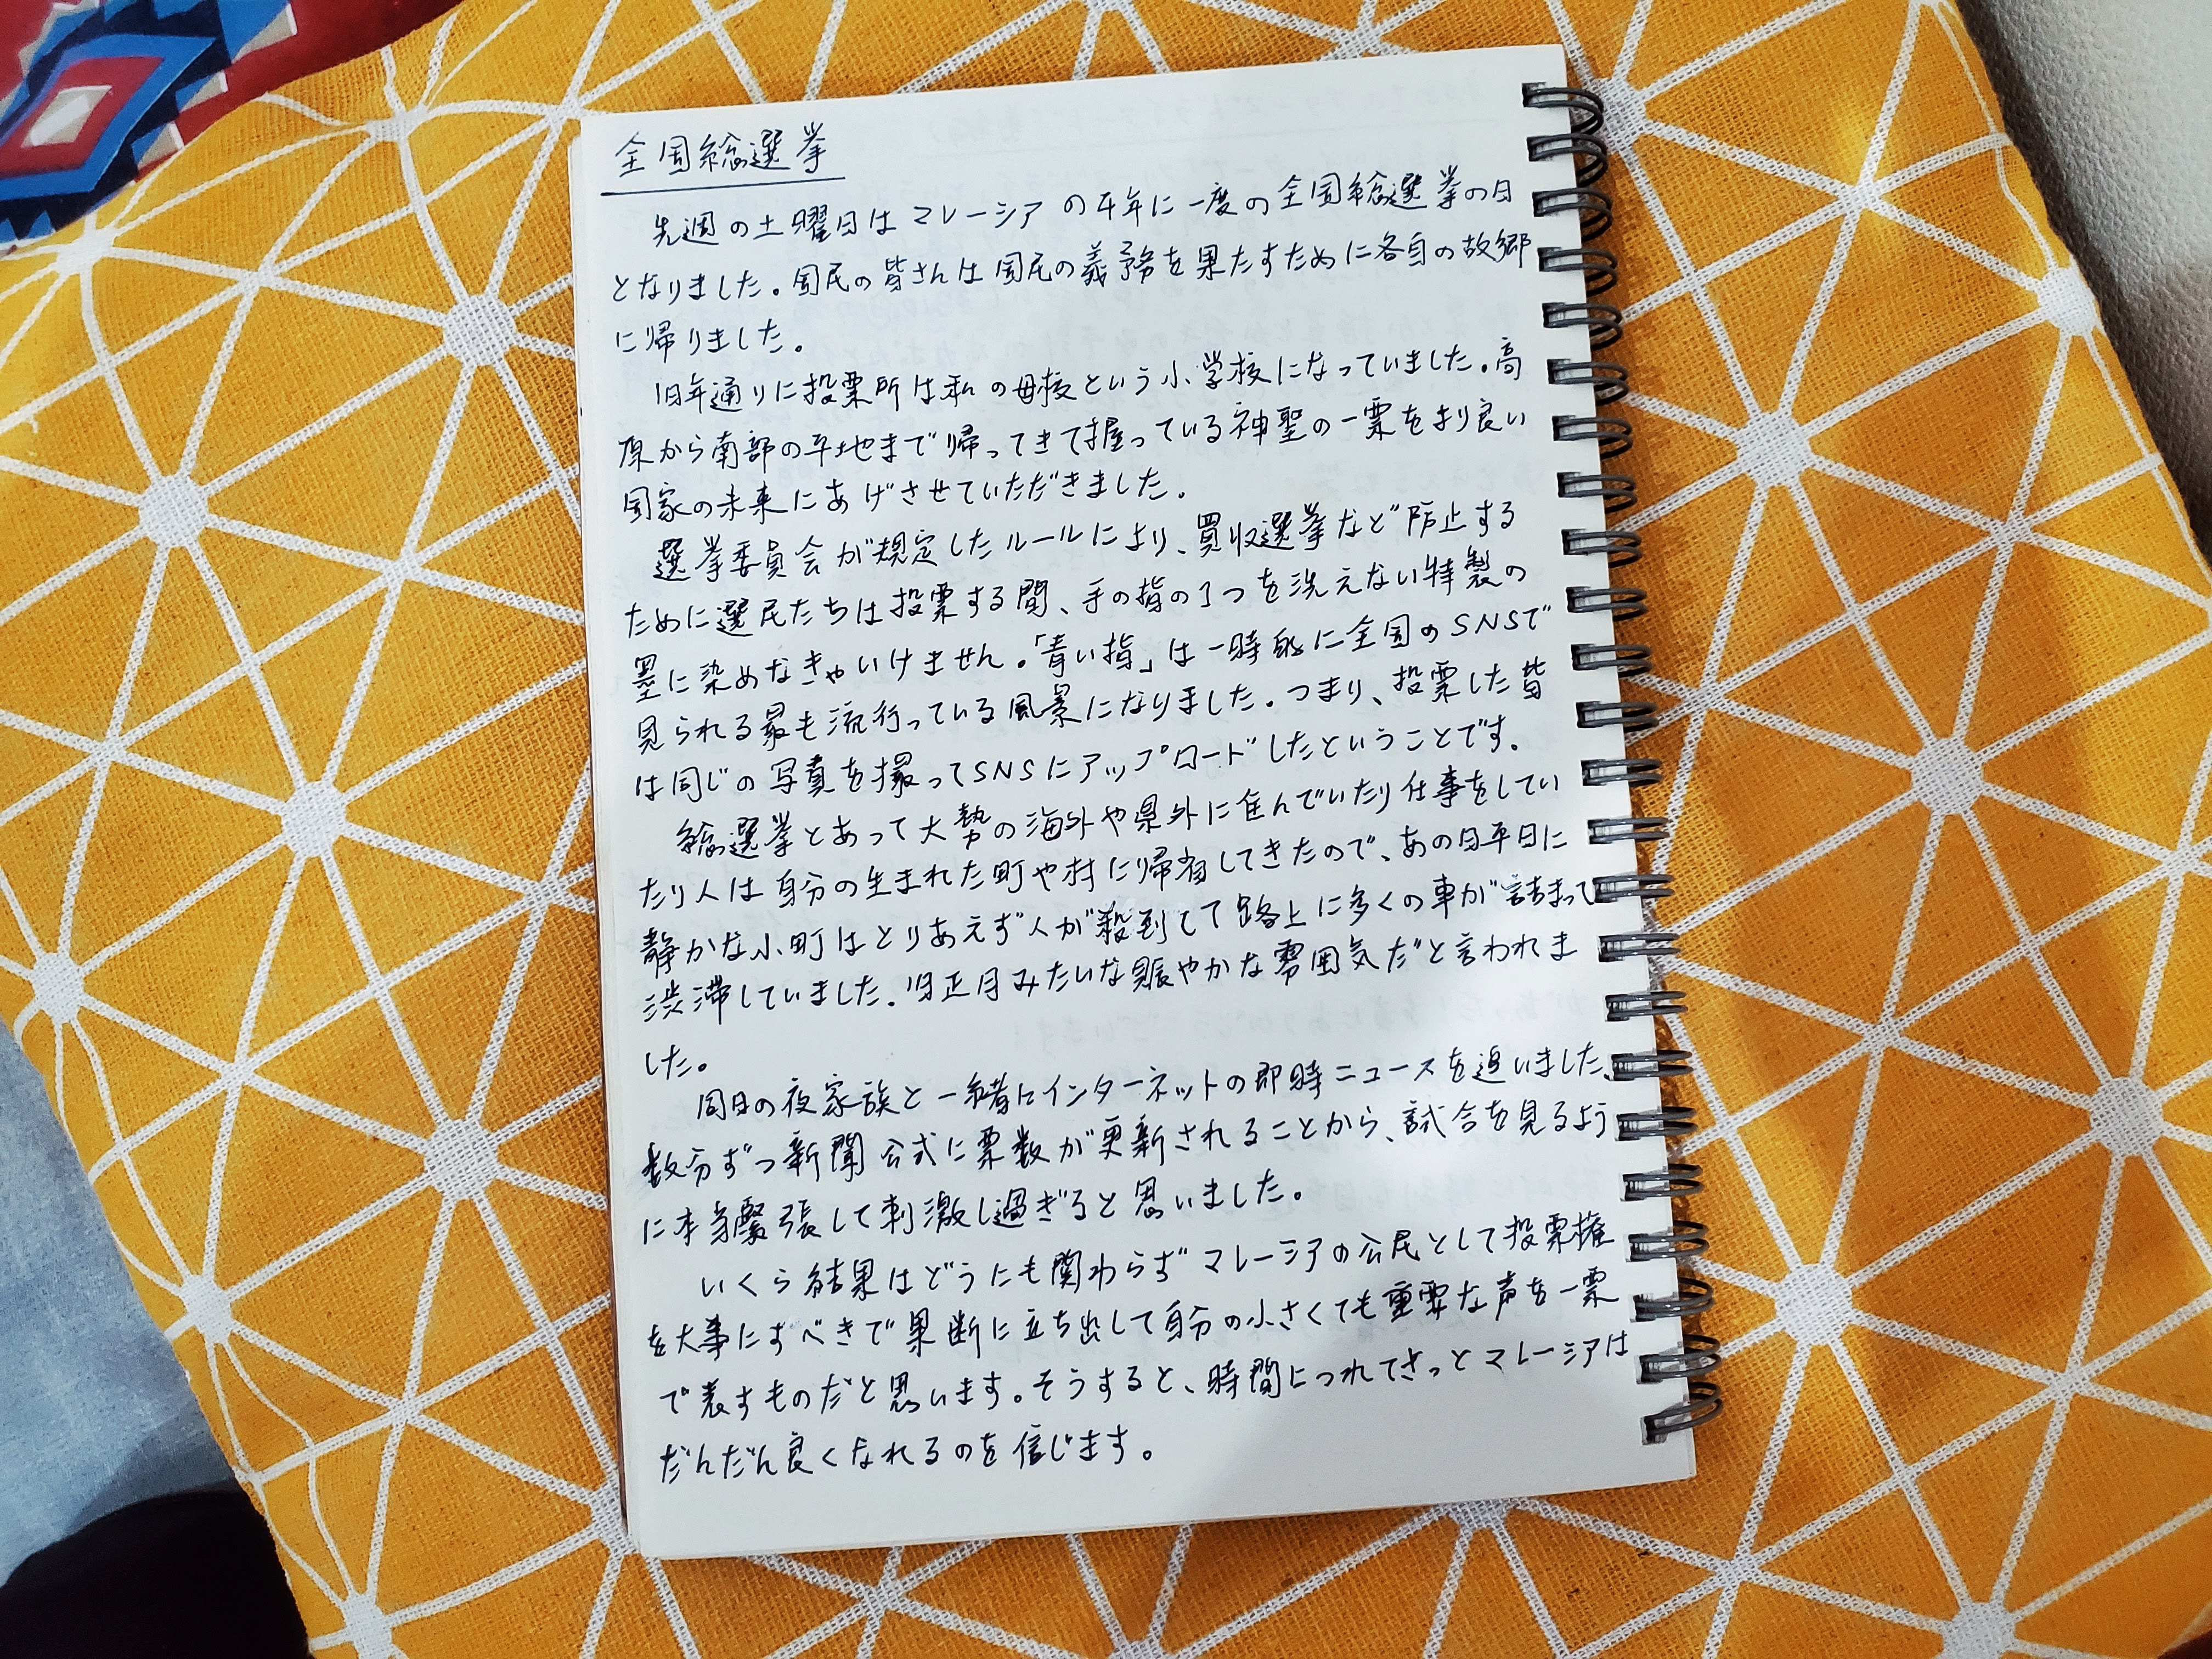 全国総選挙
先週の土曜日はマレーシアの4年に一度の全国総選挙の日
となりました。国民の皆さんは国民の義務を果たすために各自の故郷
に帰りました。
旧年通りに投票所は私の母校という小学校になっていました。高
原から南部の平地まで帰ってきて握っている神聖の一票をより良い
国家の未来にあげさせていただきました。
選挙委員会が規定したルールにより、買収選挙など防止する
ために選民たちは投票する間、手の指の1つを洗えない特製の
墨に染めなきゃいけません。「青い指」は一時的に全国のSNSで
見られる最も流行っている風景になりました。つまり、投票した皆
は同じの写真を撮ってSNSにアップロードしたということです。
総選挙とあって大勢の海外や県外に住んでいたり仕事をしてい
たり人は自分の生まれた町や村に帰省してきたので、あの日平日に
静かな小町はとりあえず人が殺到して路上に多くの車が詰まって
渋滞していました。旧正月みたいな賑やかな雰囲気だと言われま
した。
同日の夜家族と一緒にインターネットの即時ニュースを追いました。
数分ずつ新聞公式に票数が更新されることから、試合を見るよう
に本当緊張して刺激し過ぎると思いました。
いくら結果はどうにも関わらずマレーシアの公民として投票権
を大事にすべきで果断に立ち出して自分の小さくても重要な声を一票
で表すものだと思います。そうすると、時間につれてきっとマレーシアは
だんだん良くなれるのを信じます。